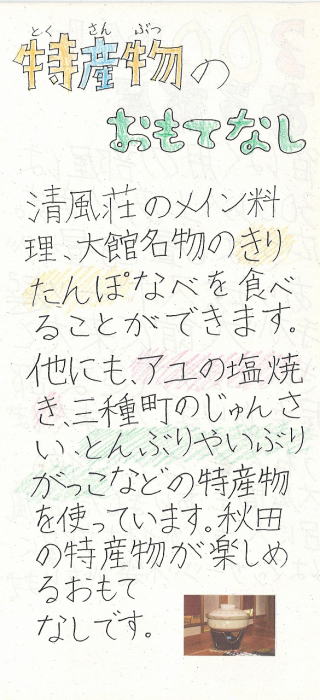 とくさんぶつ
特産物の
おもてなし
清風荘のメイン料
理、大館名物のきり
たんぽなべを食べ
ることができます。
他にも、アユの塩焼
き、三種町のじゅんさ
い、とんぶりやいぶり
がっこなどの特産物
を使っています。秋田
の特産物が楽しめ
るおもて
なしです。